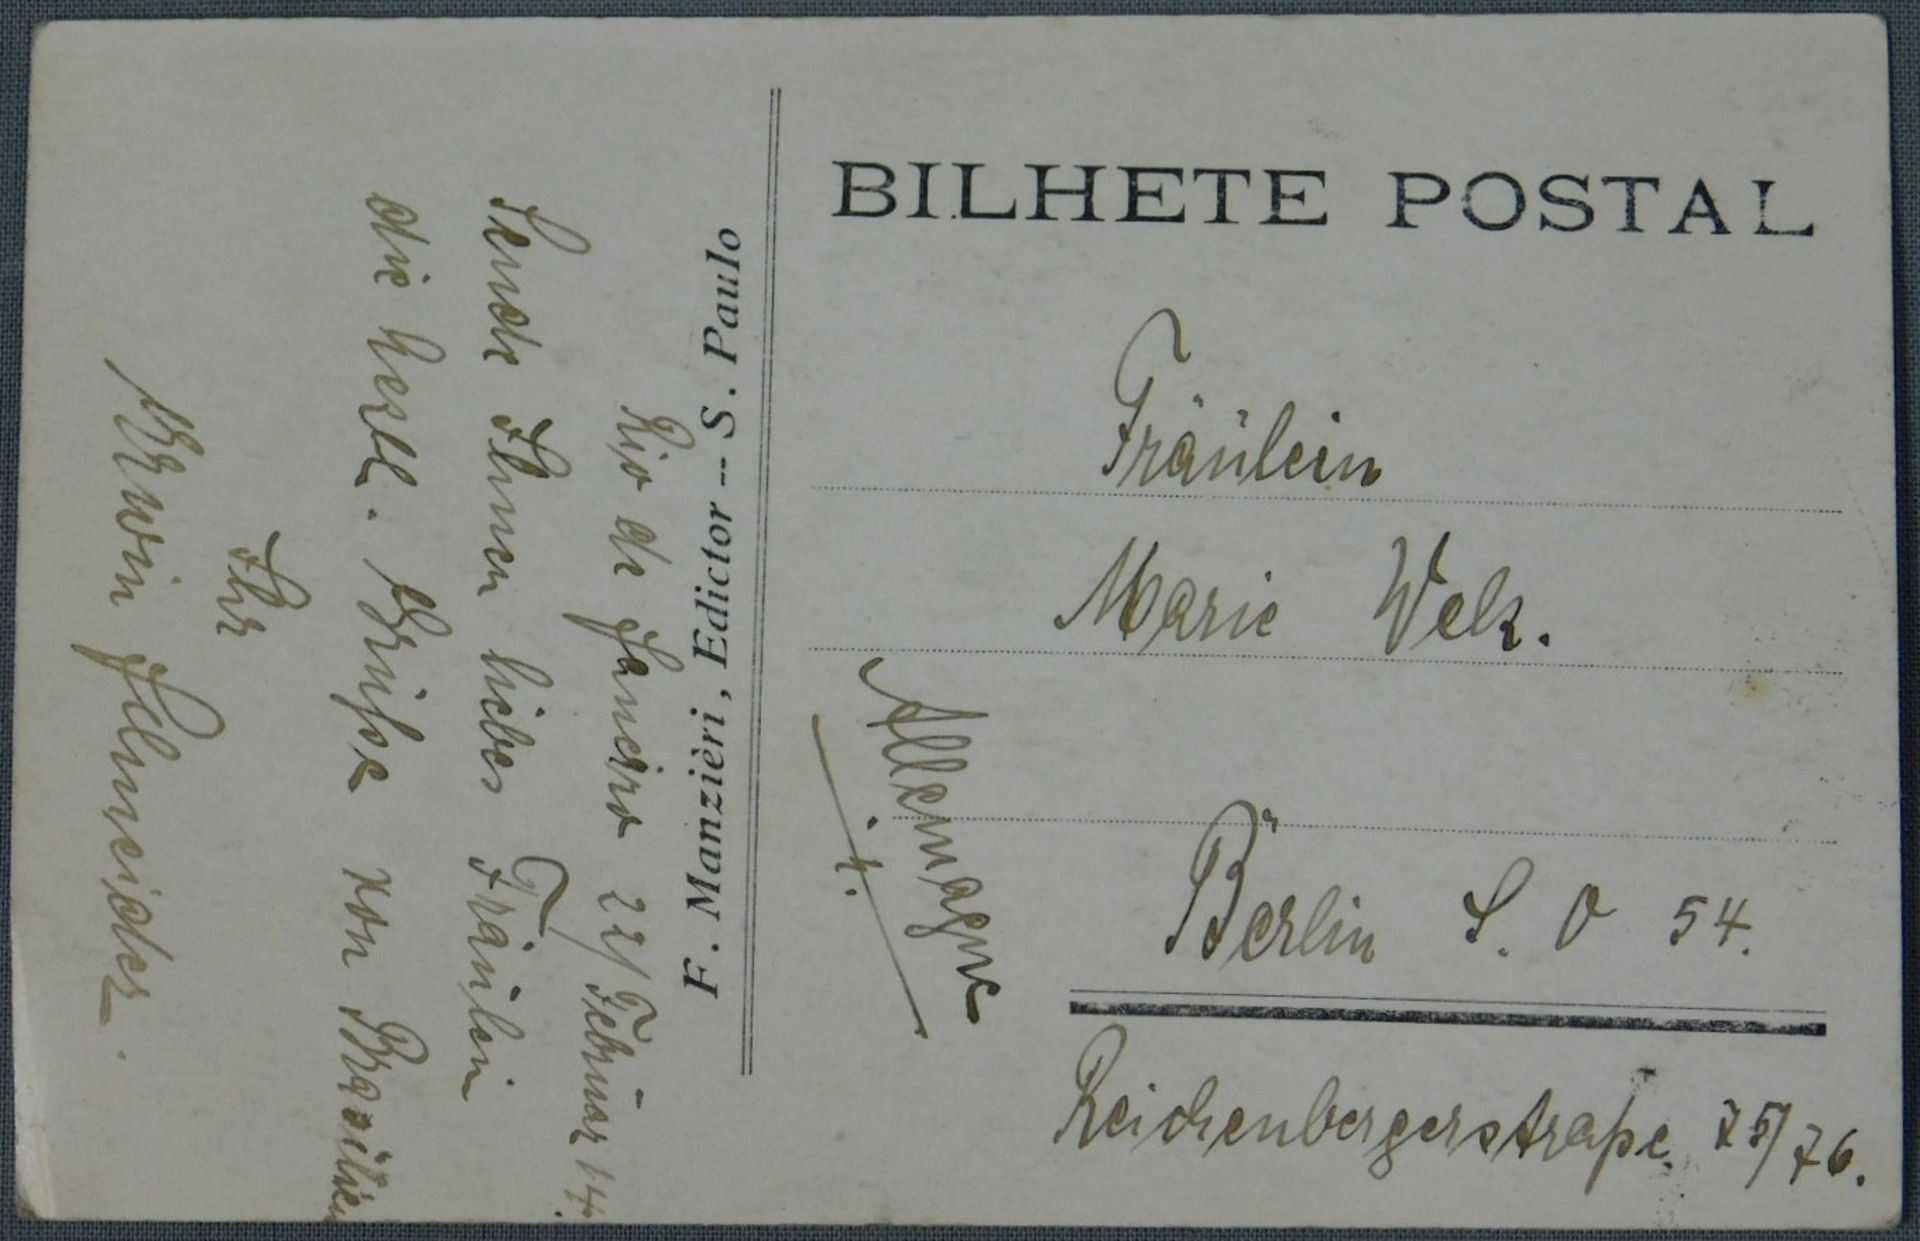 BILHETE POSTAL
F. Manzièri, Edictor -- S. Paulo
Rio de Janeiro 22/Februar 14.
Sende Ihnen liebes Fräulein
die herzl. Grüsse von Brasilien
Ihr
Erwin Schneider.
Fräulein
Marie Welz.
Allemagne
Berlin S. O 54.
Reichenbergerstraße 75/76.